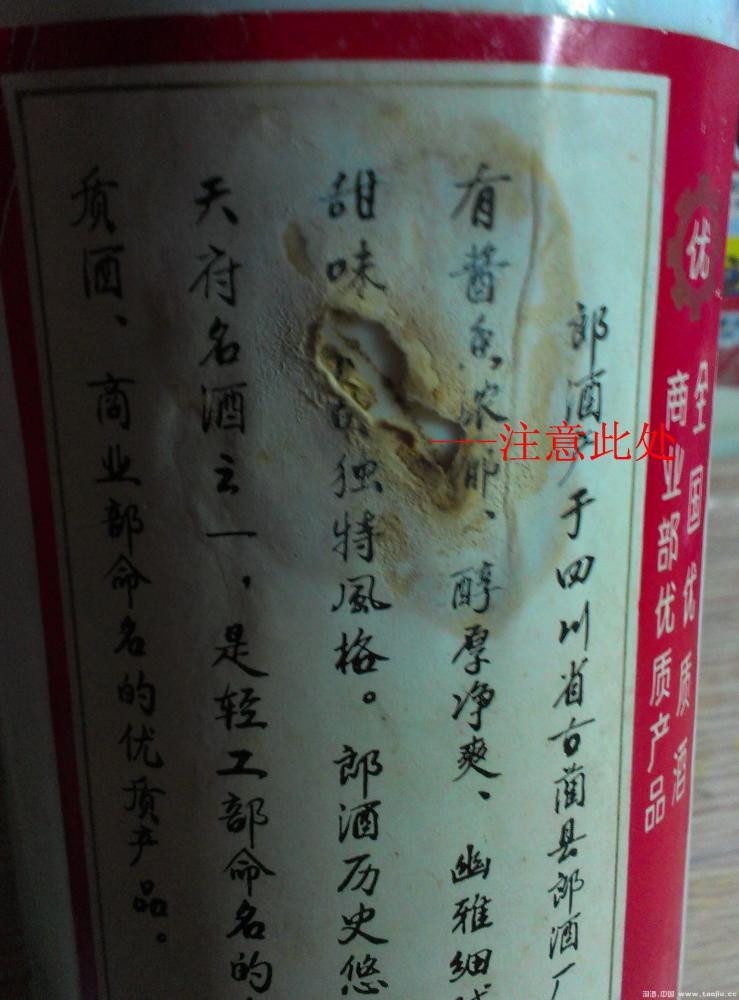 郎酒产于四川省古蔺县郎酒厂
有酱香浓郁、醇厚净爽、幽雅细
甜味 独特風格。郎酒历史悠
天府名酒之一，是轻工部命名的
质酒、商业部命名的优质产品。
优
全国优质酒
商业部优质产品
---注意此处
淘酒.中国 www.taojiu.cc